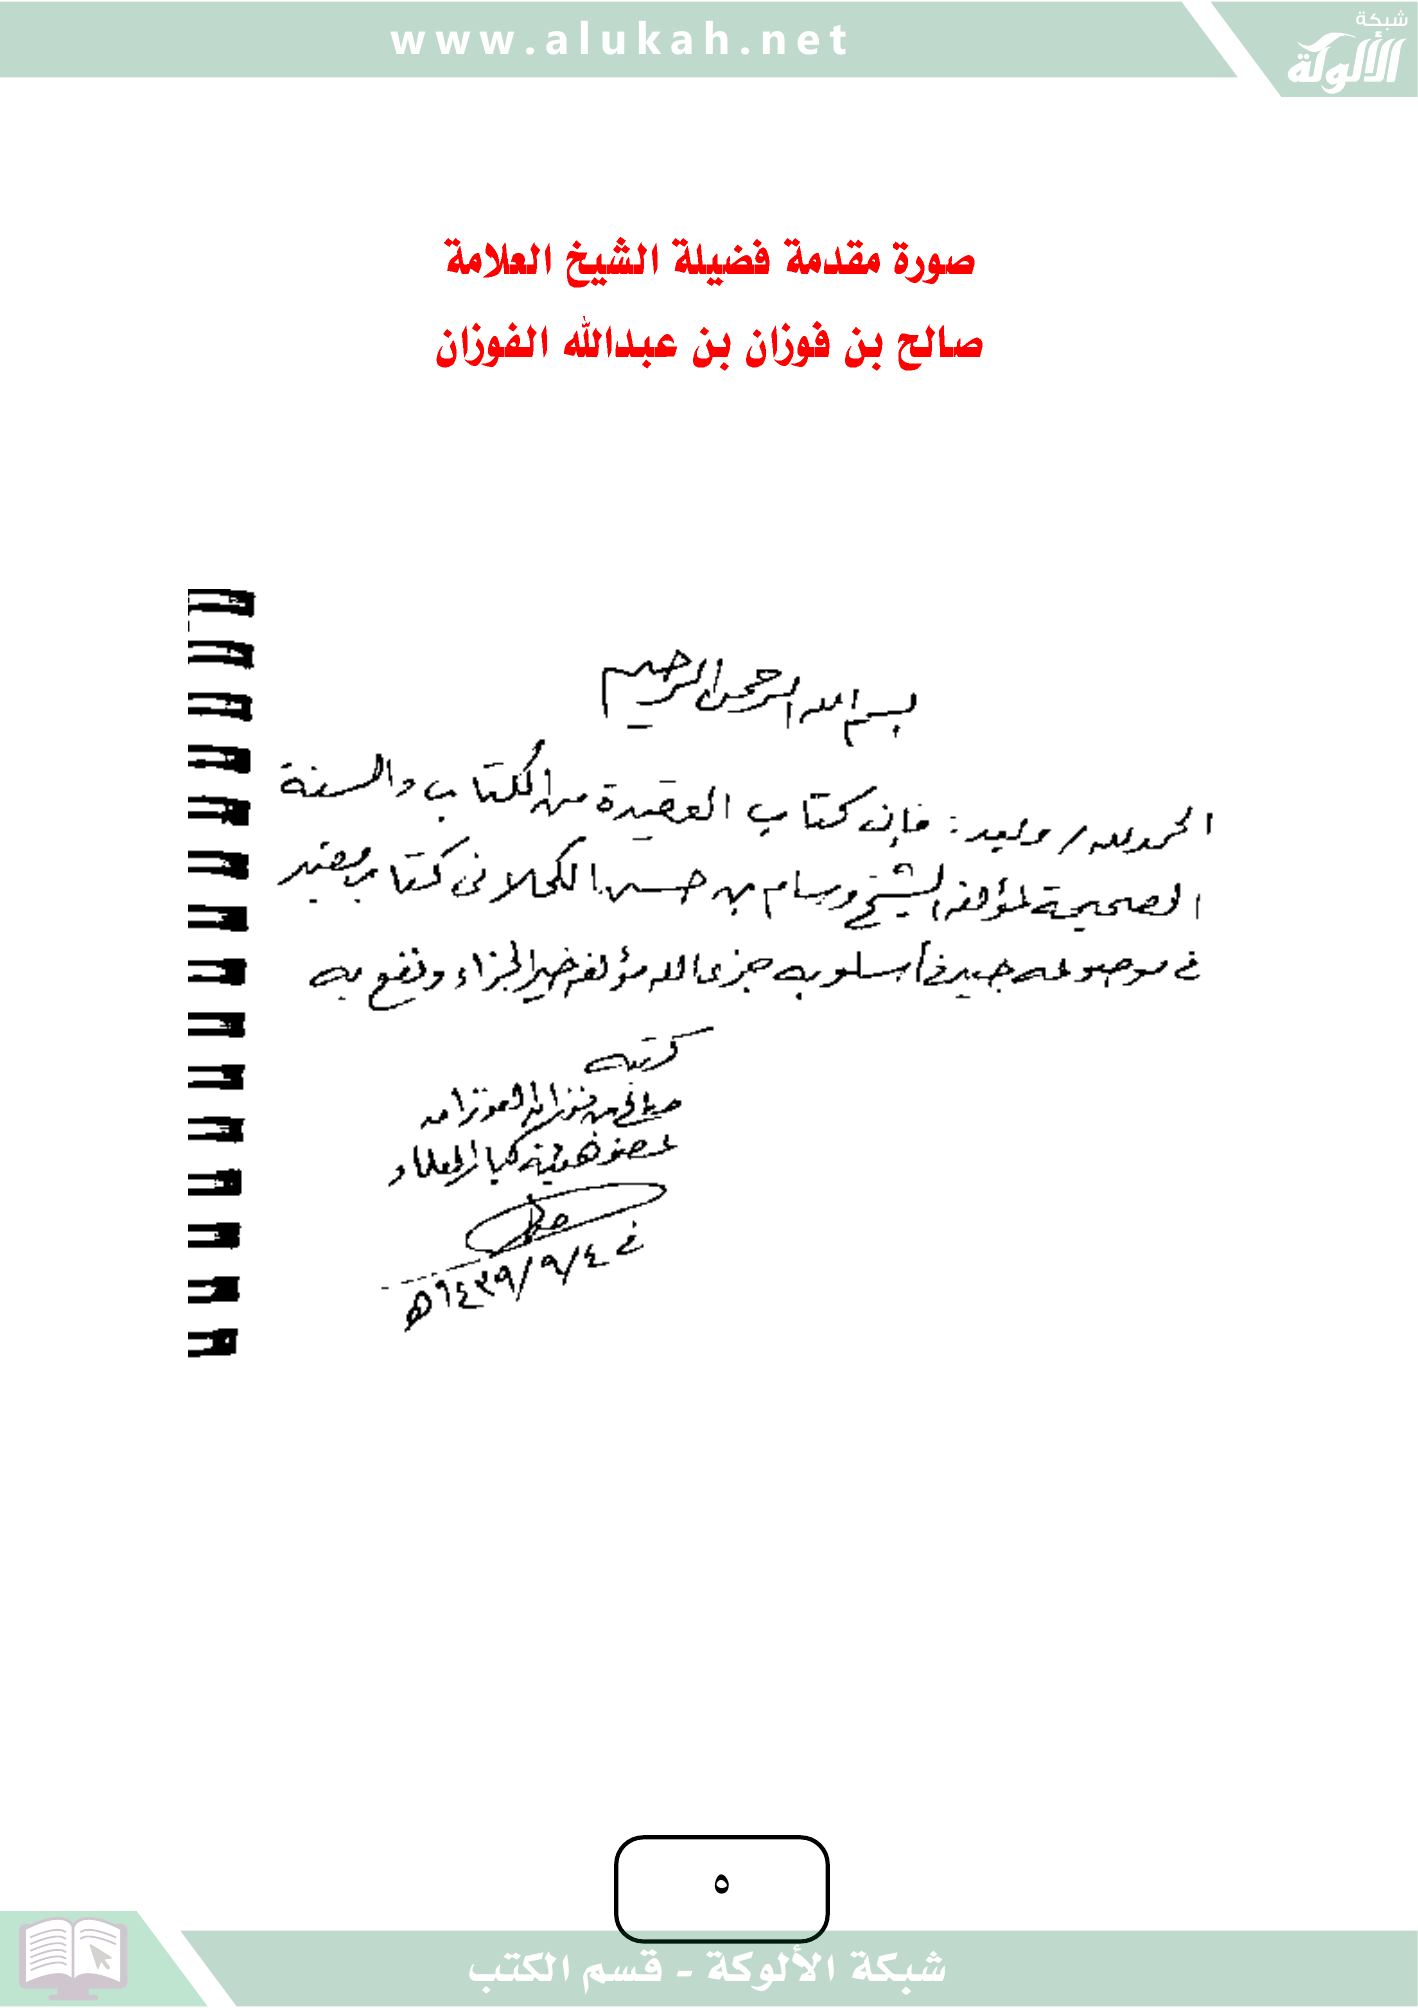 www.alukah.net
شبكة
الألوكة
صورة مقدمة فضيلة الشيخ العلامة
صالح بن فوزان بن عبدالله الفوزان
بسم الله الرحمن الرحيم
الحمد لله / وبعد : فإن كتاب العقيدة من الكتاب والسنة
الصحيحة لمؤلفه الشيخ وسام بن حسن الكحلاني كتاب مفيد
في موضوعه جيد في أسلوبه جزى الله مؤلفه خير الجزاء ونفع به
كتبه
صالح بن فوزان الفوزان
عضو هيئة كبار العلماء
في ٤/٩/١٤٣٩هـ
٥
شبكة الألوكة - قسم الكتب